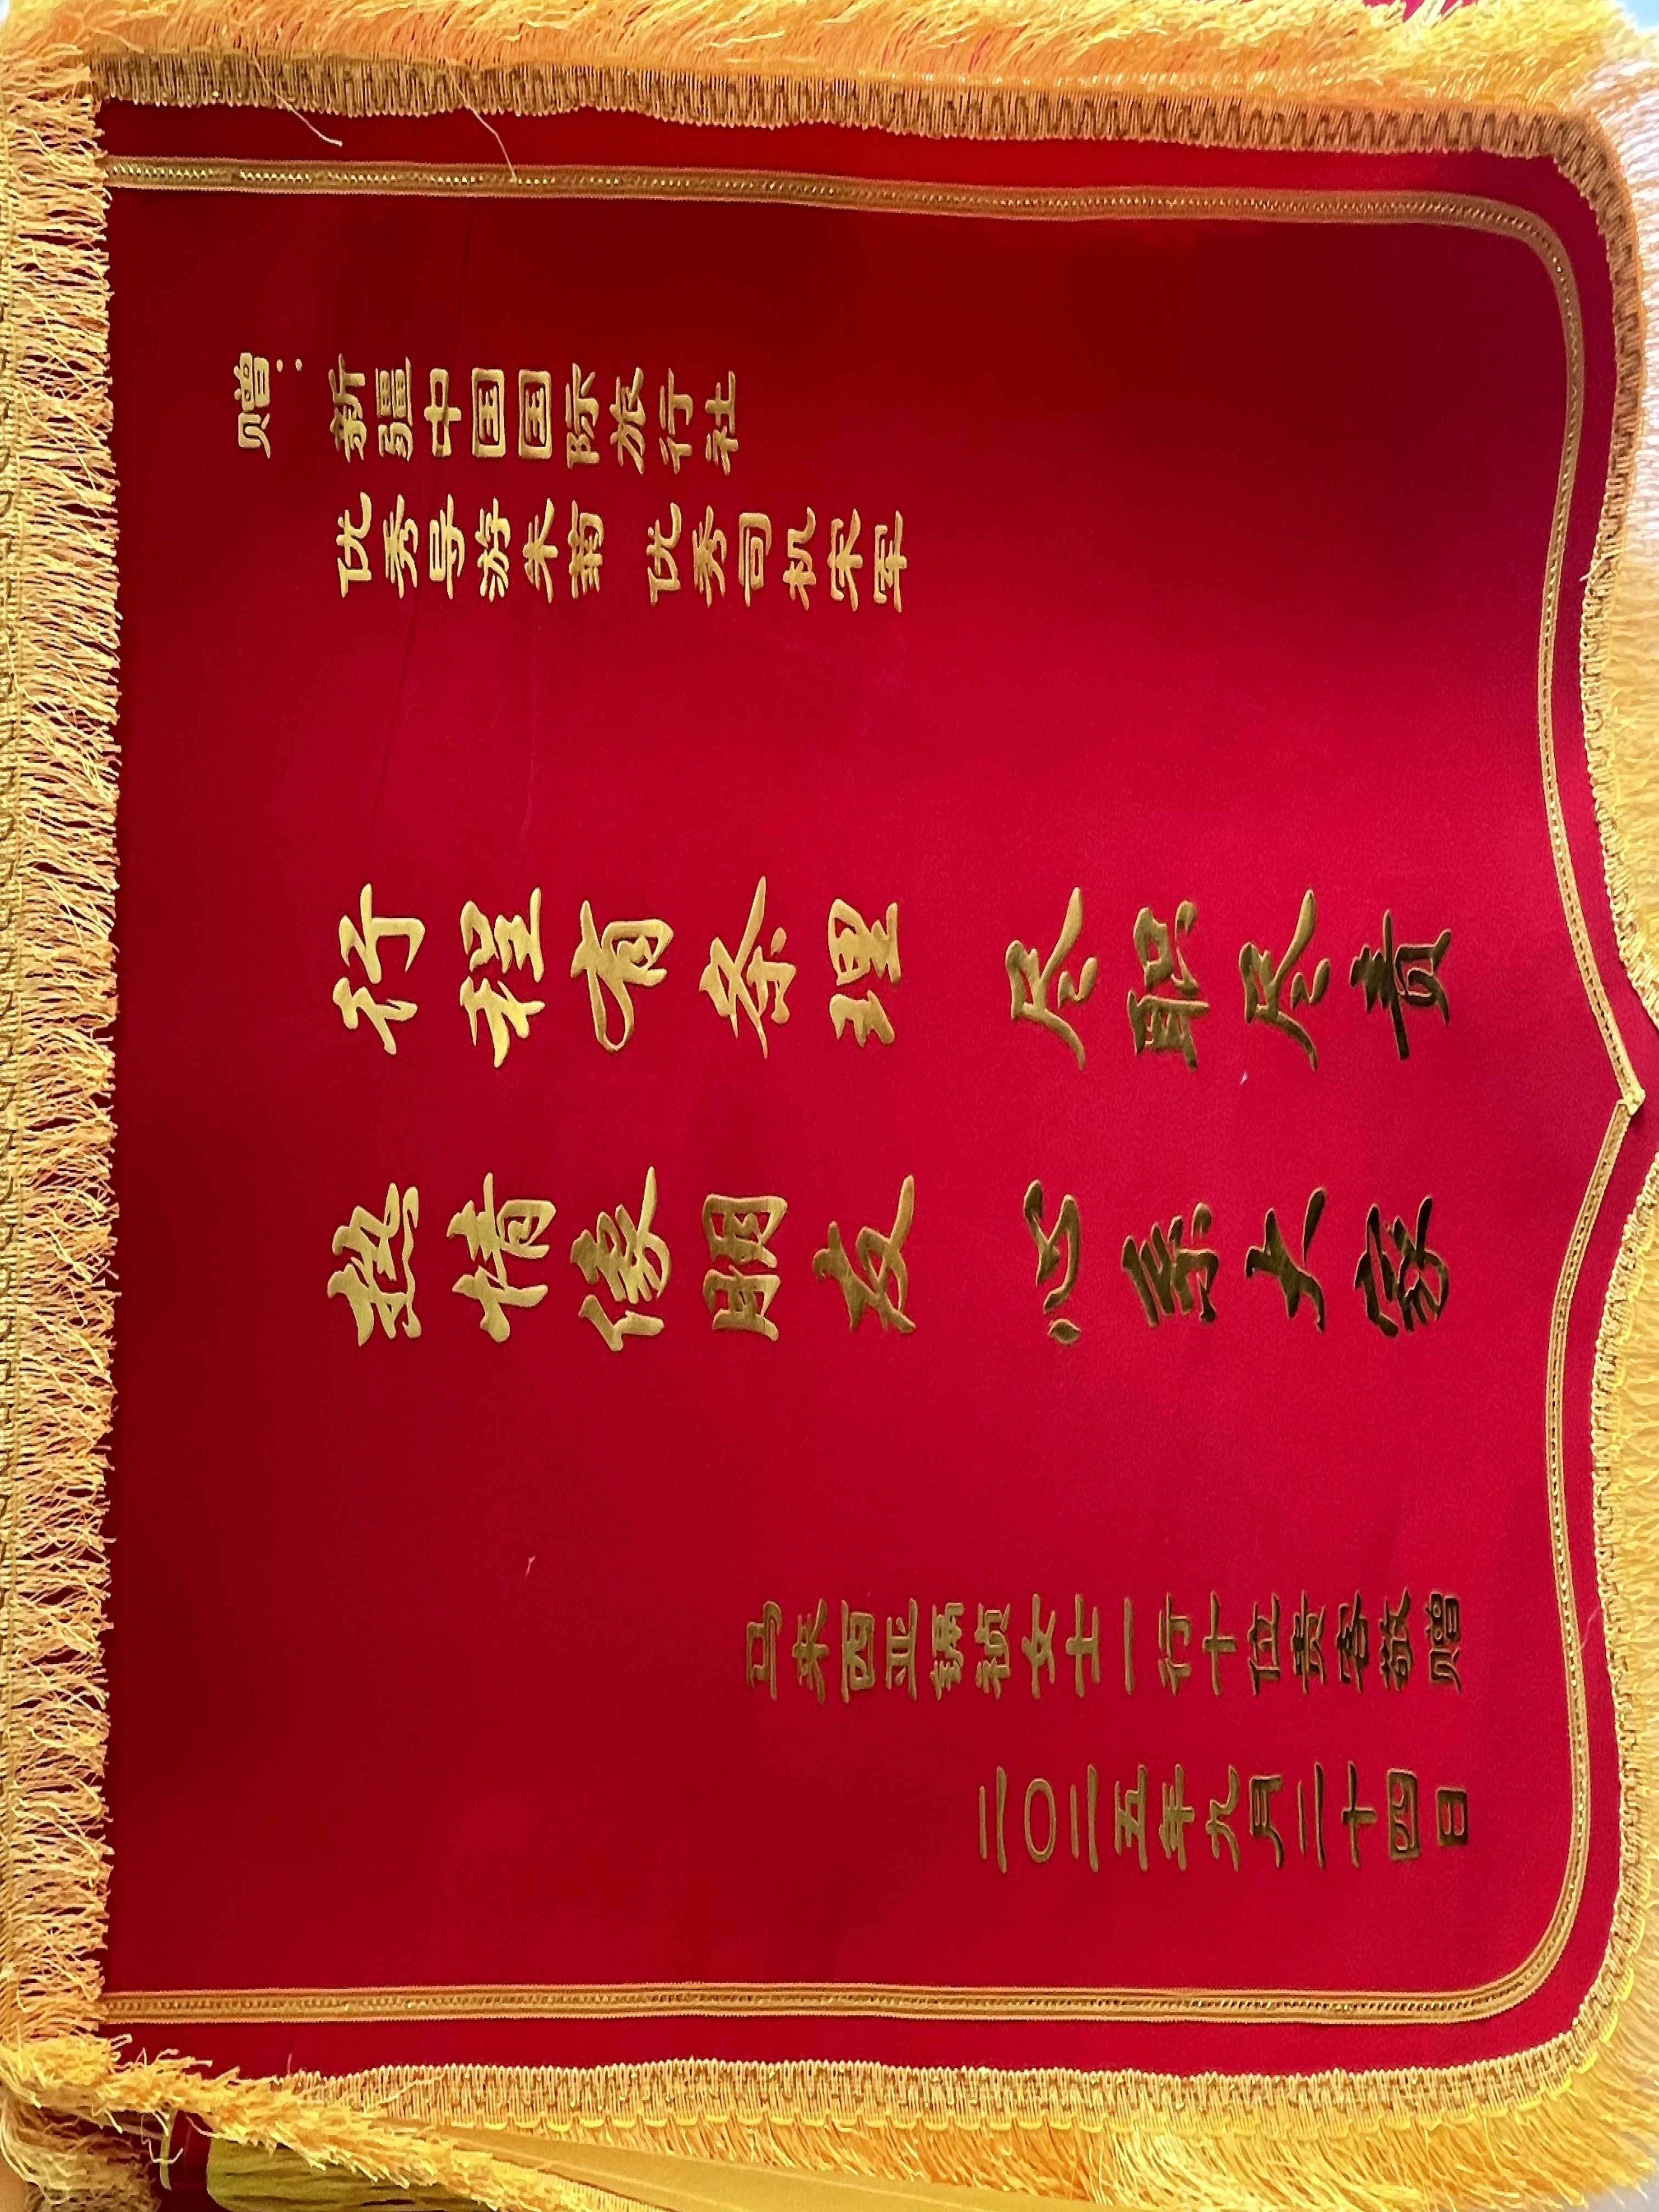 赠：新疆中国国际旅行社
优秀导游朱 优秀司机宋军
行程有条理 尽职尽责
热情像朋友 心系大家
马来西亚女士一行十位贵客敬赠
二〇二五年九月二十四日